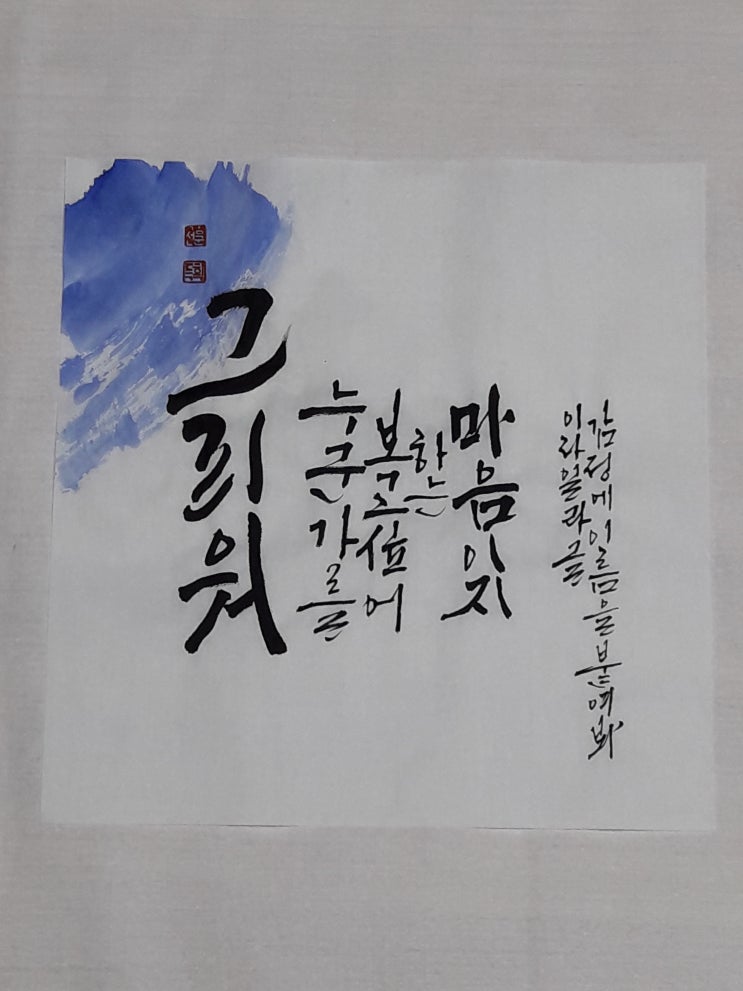 그리워
누군가를
보고싶어
하는
마음이지
감정에이름을붙여봐
이라일라글